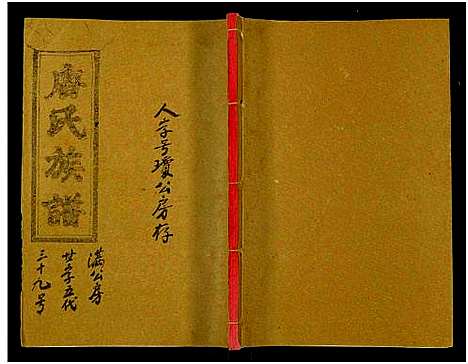 人字号瓊公房存
唐氏族譜
满公房
廿五代
三十九号